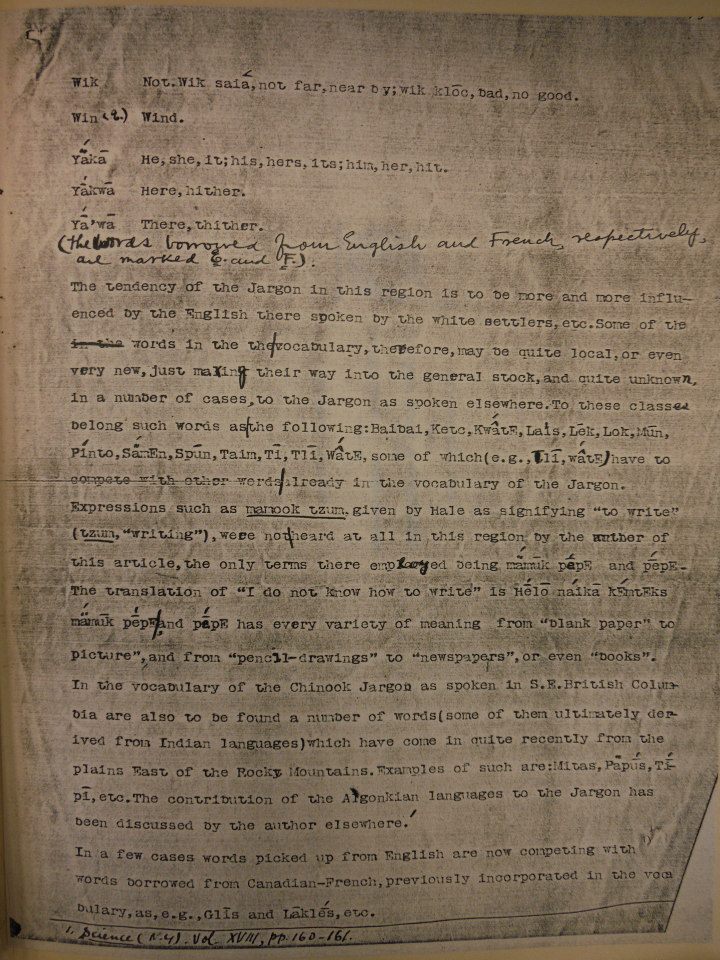 Wik Not.Wik saiá,not far,near by;wik klōc,bad,no good.
Win(E.) Wind.
Yä́kā He,she,it;his,hers,its;him,her,hit.
Yā́kwā Here,hither.
Yā́'wā There,thither.
(the words borrowed from English and French, respectively,
are marked E. and F.).
The tendency of the Jargon in this region is to be more and more influ-
enced by the English there spoken by the white settlers,etc.Some of the
in the words in the the/vocabulary,therefore,may be quite local,or even
very new,just making their way into the general stock,and quite unknown,
in a number of cases,to the Jargon as spoken elsewhere.To these classes
belong such words as/the following:Baibai,Ketc,KwâtE,Laís,Lēk,Lok,Mūn,
Pínto,SámEn,Spūn,Taim,Tī,Tlī,WâtE,some of which(e.g.,tlī,wâtE)have to
compete with other words/already in the vocabulary of the Jargon.
Expressions such as mamook tzum,given by Hale as signifying "to write"
(tzum,"writing"),were not/heard at all in this region by the author of
this article,the only terms there employed being mámūk pépE and pēpE-
The translation of "I do not know how to write" is Hélō naíkā kÉmtEks
mámūk pépE/and pépE has every variety of meaning from "blank paper" to
picture",and from "pencil-drawings" to "newspapers",or even "books".
In the vocabulary of the Chinook Jargon as spoken in S.E.British Colum-
bia are also to be found a number of words(some of them ultimately der-
ived from Indian languages)which have come in quite recently from the
plains East of the Rocky Mountains.Examples of such are:Mitas,Pāpús,Tī-
pī,etc.The contribution of the Algonkian languages to the Jargon has
been discussed by the author elsewhere.¹
In a few cases words picked up from English are now competing with
words borrowed from Canadian-French,previously incorporated in the voca
bulary,as,e.g.,Glīs and Láklés,etc.
1. Science (N.Y.). Vol. XVIII, pp. 160-161.